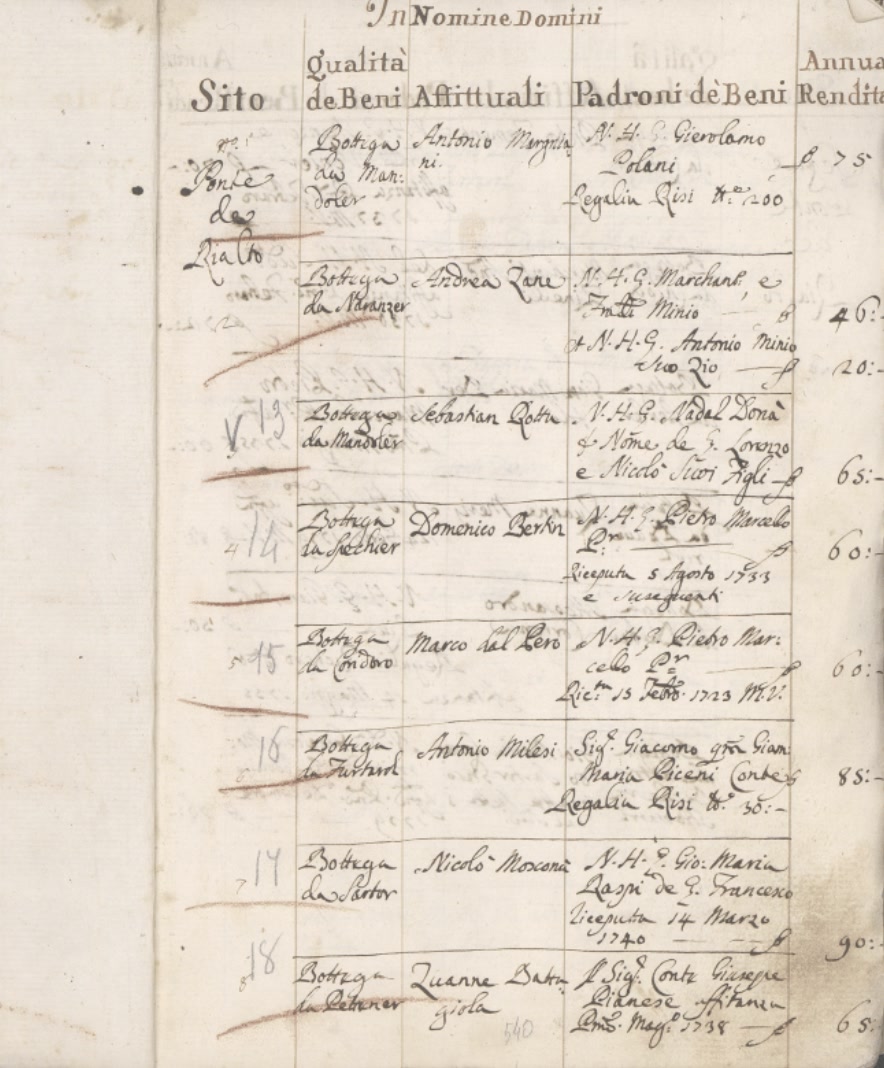 In Nomine Domini
Sito
Qualità
de Beni
Affittuali
Padroni de Beni
Annua
Rendita
N.º 1
Ponte
de
Rialto
Bottega
da Man:
doler
Antonio
ni.
N. H. S. Gierolamo
Polani
Regalia Risi 200
75
2
Bottega
da Naranzer
Andrea Zane
N. H. S. Marchant, e
Fratti Minio
46:-
et N. H. S. Antonio Minio
suo Zio
20:-
13
Bottega
da Mandoler
Sebastian Rotta
N. H. S. Nadal Donà
Nome de S. Lorenzo
e Nicolò suoi Figli
65:-
4 14
Bottega
da Spechier
Domenico Bertin
N. H. S. Pietro Marcello
Pr.
Riceputa 5 Agosto 1733
e susequenti
60:-
5 15
Bottega
da Condoro
Marco dal Pero
N. H. S. Pietro Mar:
cello Pr.
15 Febro. 1723 M.V.
60:-
16
Bottega
Antonio Milesi
Sigr. Giacomo qm Giam
Maria Piceni Conte
Regalia Risi 30:-
85:-
7 17
Bottega
da Sartor
Nicolò Mosconà
N. H. S. Gio: Maria
Raspi de S. Francesco
Riceputa 14 Marzo
1740
90:-
8 18
Bottega
da Petener
Zuanne
giola
Sigr. Conte Giusepe
Pianese affitanza
Magº 1738
65:-
540